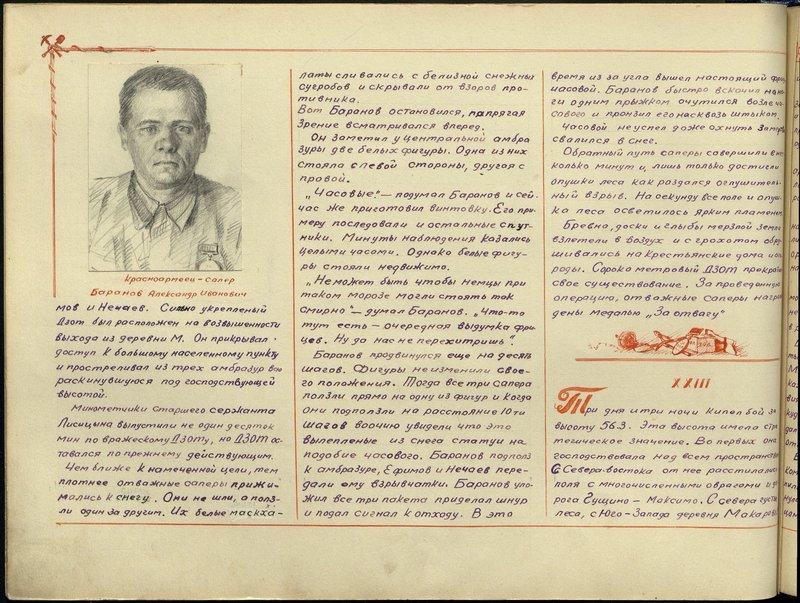 Красноармеец-сапер
Баранов Александр Иванович
мов и Нечаев. Сильно укрепленый
Дзот был расположен на возвышенности
выхода из деревни М. Он прикрывал
доступ к большому населенному пункту
и простреливал из трех амбразур всю
раскинувшуюся под господствующей
высотой.
Минометчики старшего сержанта
Лисицина выпустили не один десяток
мин по вражескому Дзоту, но ДЗОТ ос-
тавался по прежнему действующим.
Чем ближе к намеченной цели, тем
плотнее отважные саперы прижи-
мались к снегу. Они не шли, а полз-
ли один за другим. Их белые маскха-
латы сливались с белизной снежных
сугробов и скрывали от взоров про-
тивника.
Вот Баранов остановился, напрягая
зрение всматривался вперед.
Он заметил у центральной амбра
зуры две белых фигуры. Одна из них
стояла с левой стороны, другая с
правой.
„Часовые" — подумал Баранов и сей-
час же приготовил винтовку. Его при-
меру последовали и остальные спут-
ники. Минуты наблюдения казались
целыми часами. Однако белые фигу-
ры стояли недвижимо.
„Не может быть чтобы немцы при
таком морозе могли стоять так
смирно" — думал Баранов. „Что-то
тут есть — очередная выдумка фри-
цев. Ну да нас не перехитришь".
Баранов продвинулся еще на десять
шагов. Фигуры не изменили свое-
го положения. Тогда все три сапера
ползли прямо на одну из фигур и когда
они подползли на расстояние 10 ти
шагов воочию увидели что это
вылепленые из снега статуи на
подобие часового. Баранов подполз
к амбразуре, Ефимов и Нечаев пере-
дали ему взрывчатки. Баранов уло-
жил все три пакета приделал шнур
и подал сигнал к отходу. В это
время из за угла вышел настоящий
часовой. Баранов быстро вскочил на но-
ги одним прыжком очутился возле ча-
сового и пронзил его насквозь штыком.
Часовой не успел даже охнуть
свалился в снег.
Обратный путь саперы совершили в не
колько минут и, лишь только достигли
опушки леса как раздался оглушитель-
ный взрыв. На секунду все поле и опуш
ка леса осветилось ярким пламенем
Бревна, доски и глыбы мерзлой земли
взлетели в воздух и с грохотом
шивались на крестьянские дома и
роды. Сорока метровый ДЗОТ прекратил
свое существование. За проведенную
операцию, отважные саперы награж
дены медалью „За отвагу"
XXIII
Три дня и три ночи кипел бой за
высоту 56.3. Эта высота имела
тегическое значение. Во первых она
господствовала над всем пространством
С Северо-востока от нее расстилались
поля с многочисленными оврагами и до
рога Сущино — Максимо. С севера густые
леса, с Юго-Запада деревня